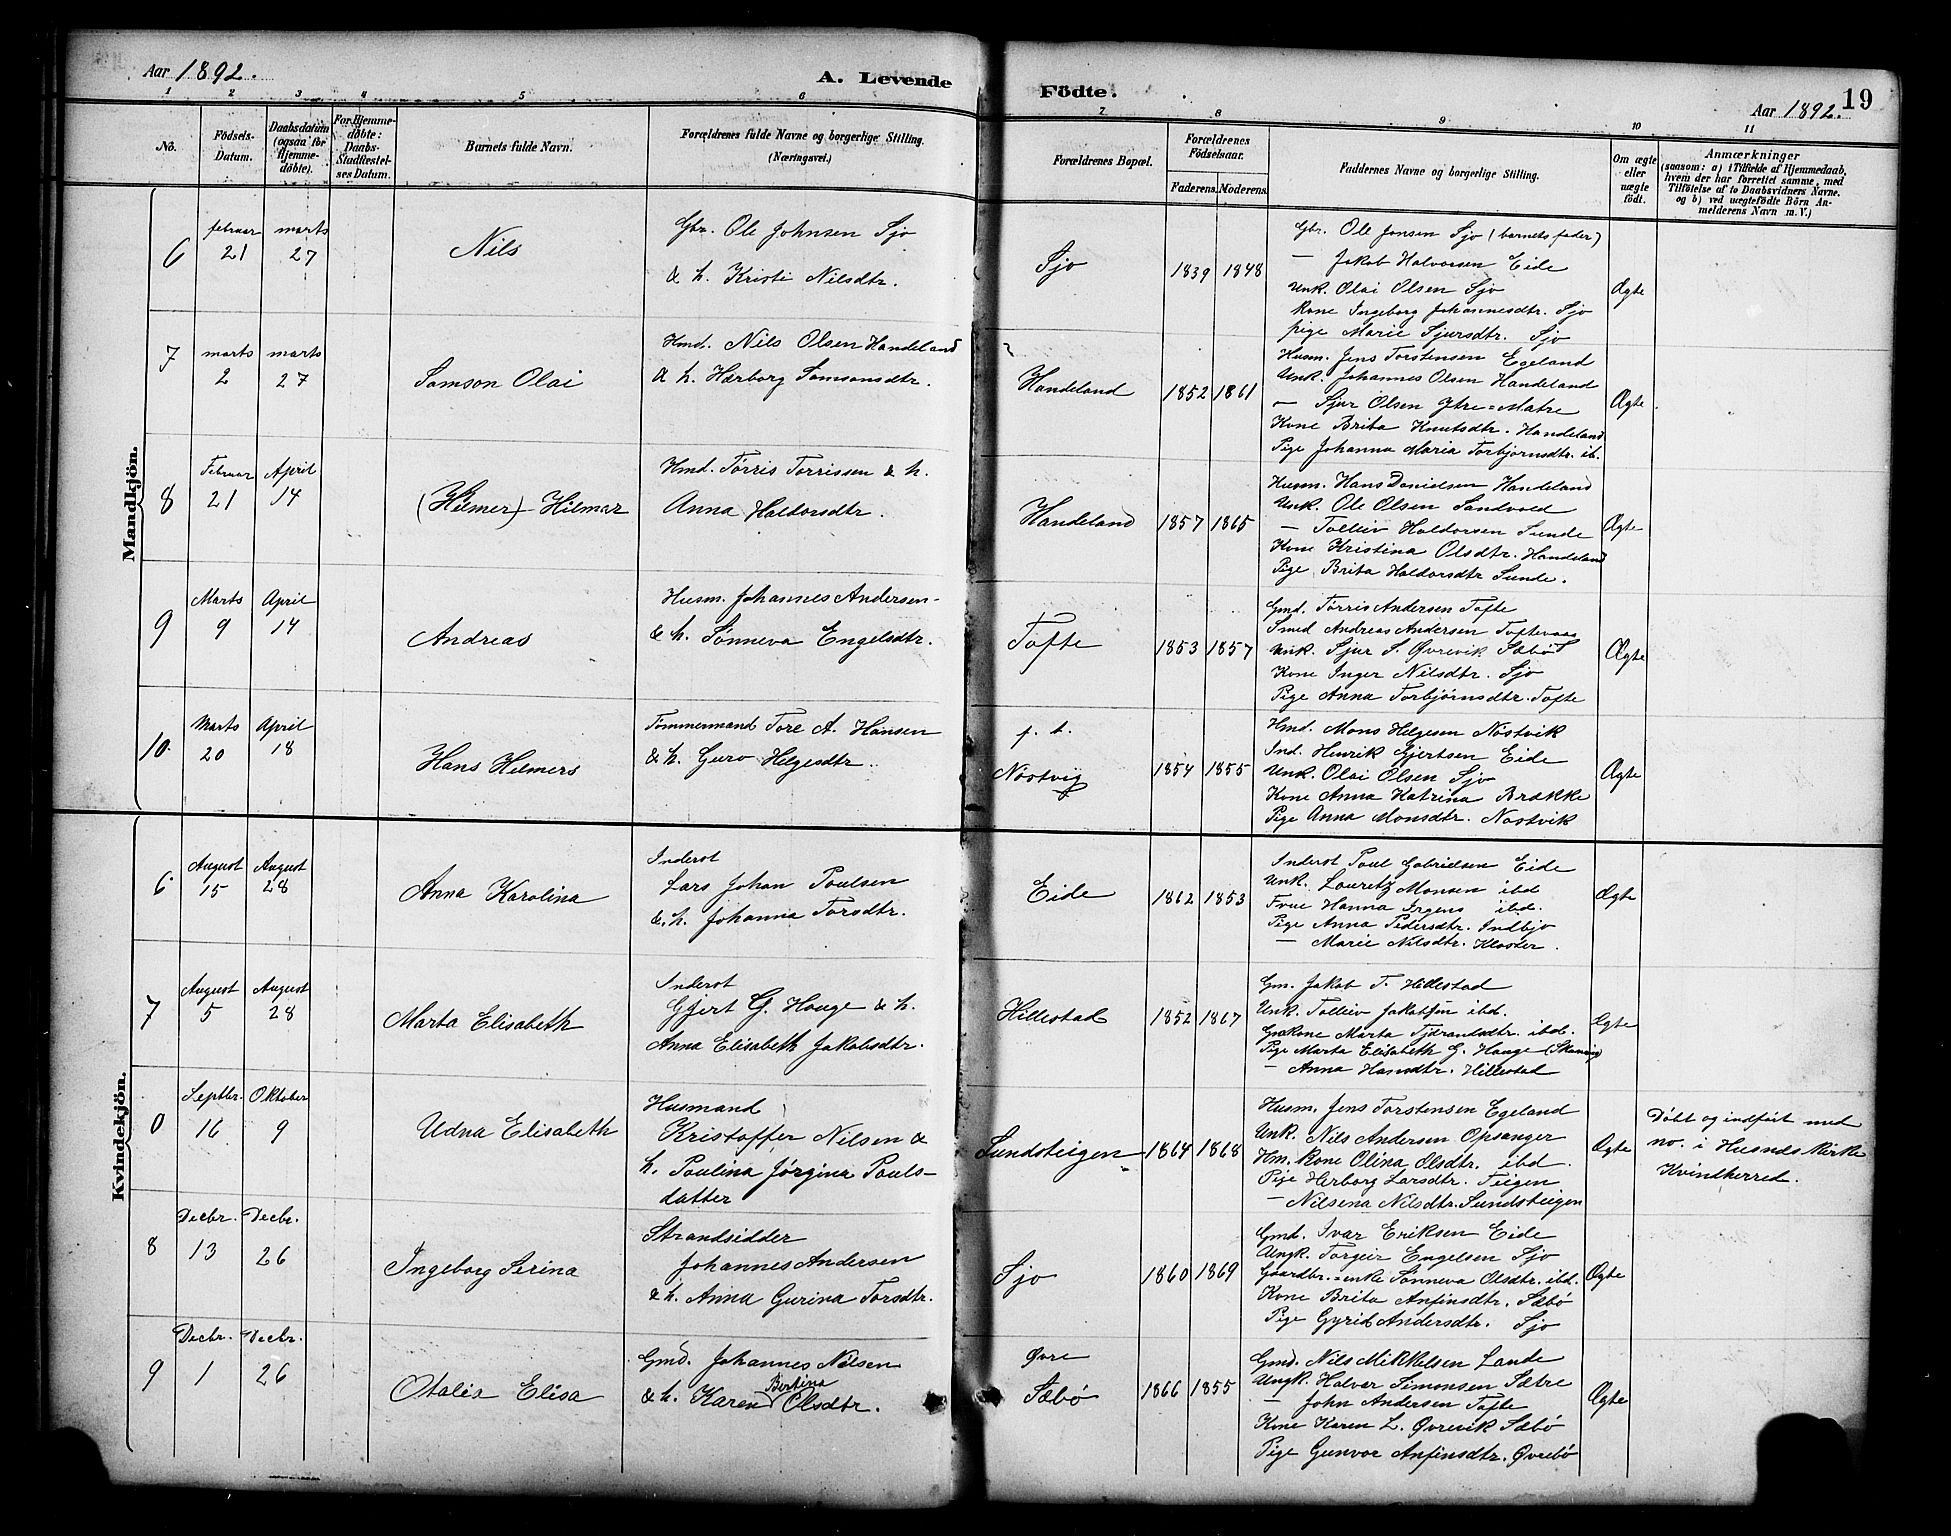 Aar 1892.
A. Levende
Födte.
Aar 1892.
19
1 2 3 4 5 6 7 8 9 10 11
No.
Födsels-
Datum.
Daabsdatum
(ogsaa for
Hjemme-
döbte).
For Hjemme-
döbte:
Daabs-
Stadfæstel-
ses Datum.
Barnets fulde Navn.
Forældrenes fulde Navne og borgerlige Stilling.
(Næringsvei.)
Forældrenes Bopæl.
Forældrenes
Födselsaar.
Faderens. Moderens.
Faddernes Navne og borgerlige Stilling.
Om ægte
eller
uægte
födt.
Anmærkninger
(saasom: a) i Tilfælde af Hjemmedaab,
hvem der har forrettet samme, med
Tilföielse af to Daabsvidners Navne.
og b) ved uægtefödte Börn An-
melderens Navn m. V.)
Mandkjön.
6
februar
21
marts
27
Nils
Gbr. Ole Johnsen Sjo
& h. Kristi Nilsdtr.
Sjo
1839 1848
Gbr. Ole Jonsen Sjo (barnets fader)
— Jakob Halvorsen Eide
Unk. Olai Olsen Sjo
Kone Ingeborg Johannesdtr. Sjo
pige Marie Sjursdtr. Sjo
Ægte
7
marts
2
marts
27
Samson Olai
Hmd. Nils Olsen Handeland
& h. Hærborg Samsonsdtr.
Handeland
1852 1861
Husm. Jens Torstensen Egeland
Unk. Johannes Olsen Handeland
— Sjur Olsen Ytre=Matre
Kone Brita Knutsdtr. Handeland
Pige Johanna Maria Torbjornsdtr. ib.
Ægte
8
Februar
21
April
14
(Hilmer) - Hilmar
Hmd. Tørris Torrissen & h.
Anna Haldorsdtr.
Handeland
1857 1865
Husm. Hans Danielsen Handeland
Unk. Ole Olsen Sandvold
— Tolleiv Haldorsen Sunde
Kone Kristina Olsdtr. Handeland
Pige Brita Haldorsdtr Sunde.
Ægte
9
Marts
9
April
14
Andreas
Husm. Johannes Andersen
& h. Sønneva Engelsdtr.
Tofte
1853 1857
Gmd. Tørris Andersen Tofte
Smed Andreas Andersen Toftevaag
Unk. Sjur S. Øvrevik Sæbø
Kone Inger Nilsdtr. Sjo
Pige Anna Torbjørnsdtr. Tofte
Ægte
10.
Marts
20
April
18
Hans Hilmers
Tømmermand Tore A. Hansen
& h. Guro Helgesdtr.
p. t.
Nøstvig
1854 1855
Hmd. Mons Helgesen Nøstvik
Ind. Henrik Gjertsen Eide
Unk. Olai Olsen Sjo
Kone Anna Katrina Brække
Pige Anna Monsdtr. Nøstvik
Ægte
Kvindekjön.
6
August
15
August
28
Anna Karolina
Inderst
Lars Johan Poulsen
& h. Johanna Torsdtr.
Eide
1862 1853
Inderst Poul Gabrielsen Eide
Unk. Lauretz Monsen ibd
Frue Hanna Irgens ibd.
Pige Anna Pedersdtr. Indbjo
— Marie Nilsdtr. Kloster.
Ægte
7
August
5
August
28
Marta Elisabeth
Inderst
Gjert G. Hauge & h.
Anna Elisabeth Jakobsdtr.
Hillestad
1852 1867
Gm. Jakob T. Hillestad
Unk. Tolleiv Jakobsen ibd.
Gmkone Marta Tjerandsdtr. ibd.
Pige Marta Elisabeth G. Hauge
— Anna Hansdtr. Hillestad
Ægte
0
Septbr.
16
Oktober
9
Udna Elisabeth
Husmand
Kristoffer Nilsen &
h. Paulina Jørgine Pouls-
datter
Sundsteigen
1864 1868
Husm. Jens Torstensen Egeland
Unk. Nils Andersen Opsanger
Hm. kone Olina Olsdtr. ibd.
Pige Herborg Larsdtr. Teigen
— Nilsena Nilsdtr. Sundsteigen
Ægte
Døbt og indført med
no. i Husnes Kirke
Kvindherred.
8
Decbr.
13
Decbr.
26
Ingeborg Serina
Strandsidder
Johannes Andersen
& h. Anna Gurina Torsdtr.
Sjo
1860 1869
Gmd. Ivar Eriksen Eide
Ungk. Torgeir Engelsen Sjo
Gaardbr.=enke Sønneva Olsdtr. ibd.
Kone Brita Anfinsdtr. Sæbø
Pige Gyrid Andersdtr. Sjo
Ægte
9
Decbr.
1
Decbr.
26
Otalia Elisa
Gmd. Johannes Nilsen
& h. Karen Bertina Olsdtr.
Øvre
Sæbø
1866 1855
Gmd. Nils Mikkelsen Lande
Ungk. Halvor Simonsen Sætre
— John Andersen Tofte
Kone Karen L. Øvrevik Sæbø
Pige Gunvor Anfinsdtr. Øvrebø
Ægte